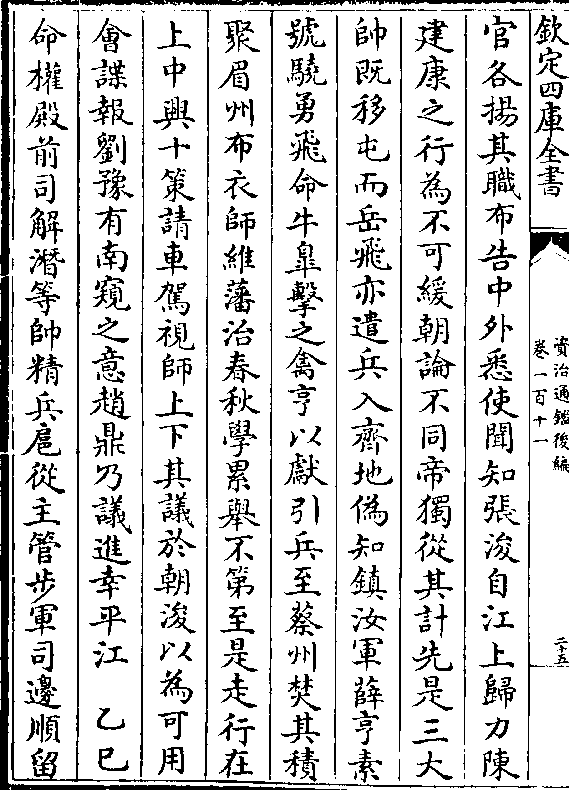 欽定四庫全書
資治通鑑後編
卷一百十一
二十五
官各揚其職布告中外悉使聞知張浚自江上歸力陳
建康之行為不可緩朝論不同帝獨從其計先是三大
帥既移屯而岳飛亦遣兵入齊地偽知鎮汝軍薛亨素
號驍勇飛命牛臯擊之禽亨以獻引兵至蔡州焚其積
聚眉州布衣師維藩治春秋學累舉不第至是走行在
上中興十策請車駕視師上下其議於朝浚以為可用
會諜報劉豫有南窺之意趙鼎乃議進幸平江 乙巳
命權殿前司解潛等帥精兵扈從主管步軍司邊順留